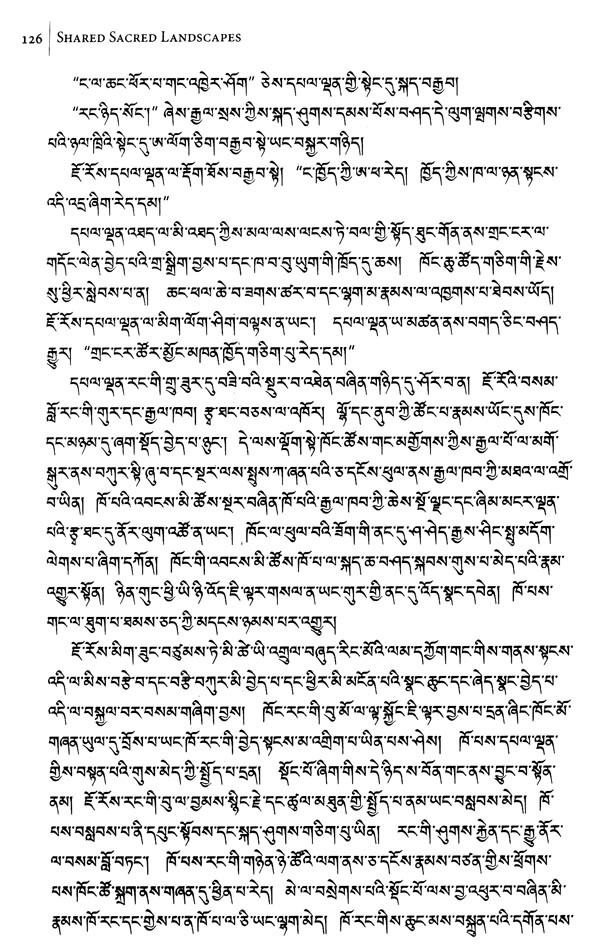 126 SHARED SACRED LANDSCAPES
“ང་ལ་ཆང་ཕོར་པ་གང་འཁྱེར་ཤོག” ཅེས་དཔལ་ལྡན་གྱི་སྟེང་དུ་སྐད་བརྒྱབ།
“རང་ཉིད་སོང་།” ཞེས་རྒྱལ་སྲས་ཀྱིས་སྐད་ཤུགས་དམས་པོས་བཤད་དེ་ལུག་ལྤགས་བརྩེགས་
པའི་ཉལ་ཁྲིའི་སྟེང་དུ་ཨ་ལོག་ཅིག་བརྒྱབ་སྟེ་ཡང་བསྐྱར་གཉིད།
ཇོ་རོས་དཔལ་ལྡན་ལ་རྡོག་ཐོས་བརྒྱབ་སྟེ། “ང་ཁྱོད་ཀྱི་ཨ་ཕ་རེད། ཁྱོད་ཀྱིས་ཁ་ལ་ཉན་སྟངས་
འདི་འདྲ་ཞིག་རེད་དམ།”
དཔལ་ལྡན་འཐད་ལ་མི་འཐད་ཀྱིས་མལ་ལས་ལངས་ཏེ་བལ་གྱི་སྟོད་ཐུང་གོན་ནས་གྲང་ངར་ལ་
གདོང་ལེན་བྱེད་པའི་གྲ་སྒྲིག་བྱས་པ་དང་ཁ་བ་བུ་ཡུག་གི་ཁྲོད་དུ་ཆས། ཁོང་ཆུ་ཚོད་གཅིག་གི་རྗེས་
སུ་ཕྱིར་སླེབས་པ་ན། ཆང་ཕལ་ཆེ་བ་ཟགས་ཚར་བ་དང་ལྷག་མ་རྣམས་ལ་འཁྱགས་པ་ཐེབས་ཡོད།
ཇོ་རོས་དཔལ་ལྡན་ལ་མིག་ལོག་ཤིག་བལྟས་ན་ཡང་། དཔལ་ལྡན་ཡ་མཚན་ནས་བགད་ཅིང་བཤད་
རྒྱུར། “གྲང་ངར་ཚོར་མྱོང་མཁན་ཁྱོད་གཅིག་པུ་རེད་དམ།”
དཔལ་ལྡན་རང་གི་གྲུ་ཟུར་དུ་བཟི་བའི་སྔུར་བ་འཐེན་བཞིན་གཉིད་དུ་ཤོར་བ་ན། ཇོ་རོའི་བསམ་
བློ་རང་གི་གུར་དང་རྒྱལ་ཁབ། རྩྭ་ཐང་བཅས་ལ་འཁོར། ལྷོ་དང་ནུབ་ཀྱི་ཚོང་པ་རྣམས་ཡོང་དུས་ཁོང་
དང་མཉམ་དུ་ཞག་སྡོད་བྱེད་པ་ཉུང་། དེ་ལས་ལྡོག་སྟེ་ཁོང་ཚོས་གང་མགྱོགས་ཀྱིས་རྒྱལ་པོ་ལ་མགོ་
སྒུར་ནས་བཀུར་སྟི་ཞུ་བ་དང་སྔར་ལས་སྤུས་ཀ་ཞན་པའི་ཅ་དངོས་ཕུལ་ནས་རྒྱལ་ཁབ་ཀྱི་མཐའ་ལ་འགྲོ་
བ་ཡིན། ཁོ་པའི་འབངས་མི་ཚོས་སྔར་བཞིན་ཁོ་པའི་རྒྱལ་ཁབ་ཀྱི་ཆེས་སྔོ་ལྗང་དང་ཞིམ་མངར་ལྡན་
པའི་རྩྭ་ཐང་དུ་ནོར་ལུག་འཚོ་ན་ཡང་། ཁོང་ལ་ཕུལ་བའི་ཟོག་གི་ནང་དུ་ཤ་ཤེད་རྒྱས་ཤིང་སྤུ་མདོག་
ལེགས་པ་ཞིག་དཀོན། ཁོང་གི་འབངས་མི་ཚོས་ཁོ་པ་ལ་སྐད་ཆ་བཤད་སྐབས་གུས་པ་མེད་པའི་རྣམ་
འགྱུར་སྟོན། ཉིན་གུང་ཕྱི་ཡི་ཉི་འོད་ཇི་ལྟར་གསལ་ན་ཡང་གུར་གྱི་ནང་དུ་འོད་སྣང་དབེན། ཁོ་པས་
གང་ལ་ཐུག་པ་ཐམས་ཅད་ཀྱི་མདངས་ཉམས་པར་འགྱུར།
ཇོ་རོས་མིག་ཟུང་བཙུམས་ཏེ་མི་ཚེ་ཡི་འགྲུལ་བཞུད་རིང་མོའི་ལམ་དཀྱོག་གང་གིས་གནས་སྟངས་
འདི་ལ་མིས་བརྩེ་བ་དང་བརྩི་བཀུར་མི་བྱེད་པ་དང་ཕྱིར་མི་མངོན་པའི་སྣང་ཆུང་དང་ཞེད་སྣང་བྱེད་པ་
འདི་ལ་བསྐྱལ་བར་བསམ་གཞིག་བྱས། ཁོང་རང་གི་བུ་མོ་ལ་ལྟ་སྐྱོང་ཇི་ལྟར་བྱས་པ་དྲན་ཞིང་ཁོང་མོ་
གཞན་ཡུལ་དུ་བྲོས་པ་ཡང་ཁོ་རང་གི་བྱེད་སྟངས་མ་འགྲིག་པ་ཡིན་པས་ཤེས། ཁོ་པས་དཔལ་ལྡན་
གྱིས་བསྟན་པའི་གུས་མེད་ཀྱི་སྤྱོད་པ་དྲན། སྡོང་པོ་ཞིག་གིས་དེ་ཉིད་ས་བོན་གང་ནས་བྱུང་བ་སྟོན་
ནམ། ཇོ་རོས་རང་གི་བུ་ལ་བྱམས་སྙིང་རྗེ་དང་ཚུལ་མཐུན་གྱི་སྤྱོད་པ་ནམ་ཡང་བསླབས་མེད། ཁོ་
པས་བསླབས་པ་ནི་དཔུང་སྟོབས་དང་སྐད་ཤུགས་གཅིག་པུ་ཡིན། རང་གི་ཤུགས་རྐྱེན་དང་རྒྱུ་ནོར་
ལ་བསམ་བློ་བཏང་། ཁོ་པས་རང་གི་གཉེན་ཉེ་ཚོའི་ལག་ནས་ཅ་དངོས་རྣམས་བཙན་གྱིས་ཕྲོགས་
པས་ཁོང་ཚོ་སྐྲག་ནས་གཞན་དུ་ཕྱིན་པ་རེད། མེ་ལ་བསྲེགས་པའི་སྡོང་པོ་ལས་བྱ་འཕུར་བ་བཞིན་མི་
རྣམས་ཁོ་རང་དང་གྱེས་པ་ན་ཁོ་པ་ལ་ཅི་ཡང་ལྷག་མེད། ཁོ་རང་གིས་ཆུང་མས་བསྐྲུན་པའི་དགོན་པས་